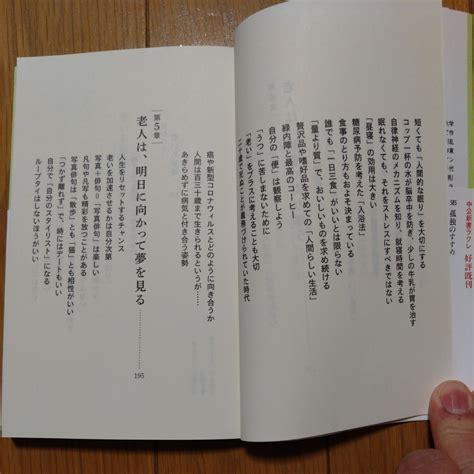 短くても「人間的な眠り」を大切にする
コップ一杯の水が脳卒中を防ぎ、少しの牛乳が胃を治す
自律神経のメカニズムを知り、就寝時間を考える
眠れなくても、それをストレスにすべきではない
「昼寝」の効用は大きい
糖尿病予防を考えた「入浴法」
食事のとり方もおおよそ決まっている
誰でも「一日三食」がいいとは限らない
「量より質」で、おいしいものを求め続ける
贅沢品や嗜好品を求めての「人間らしい生活」
緑内障と最高のコーヒー
自分の「便」は観察しよう
「うつ」に苦しまないために
「老い」をプラスに考えることも大切
づけられていた時代
癌や新型コロナウィルスとどのように向き合うか
人間は百三十歳まで生きられるというが……
あきらめずに病気と付き合う姿勢
第5章
老人は、明日に向かって夢を見る
195
人生をリセットするチャンス
老いを加速させるかは自分次第
写真＋俳句＝「写真俳句」は楽しい
凡句や凡写も精彩を放つことがある
写真俳句は「散歩」とも「猫」とも相性がいい
「つかず離れず」で、時にはデートもいい
自分で「自分のスタイリスト」になる
ループタイはしないほうがいい
中公新書ラクレ 好評既刊
孤独のすすめ